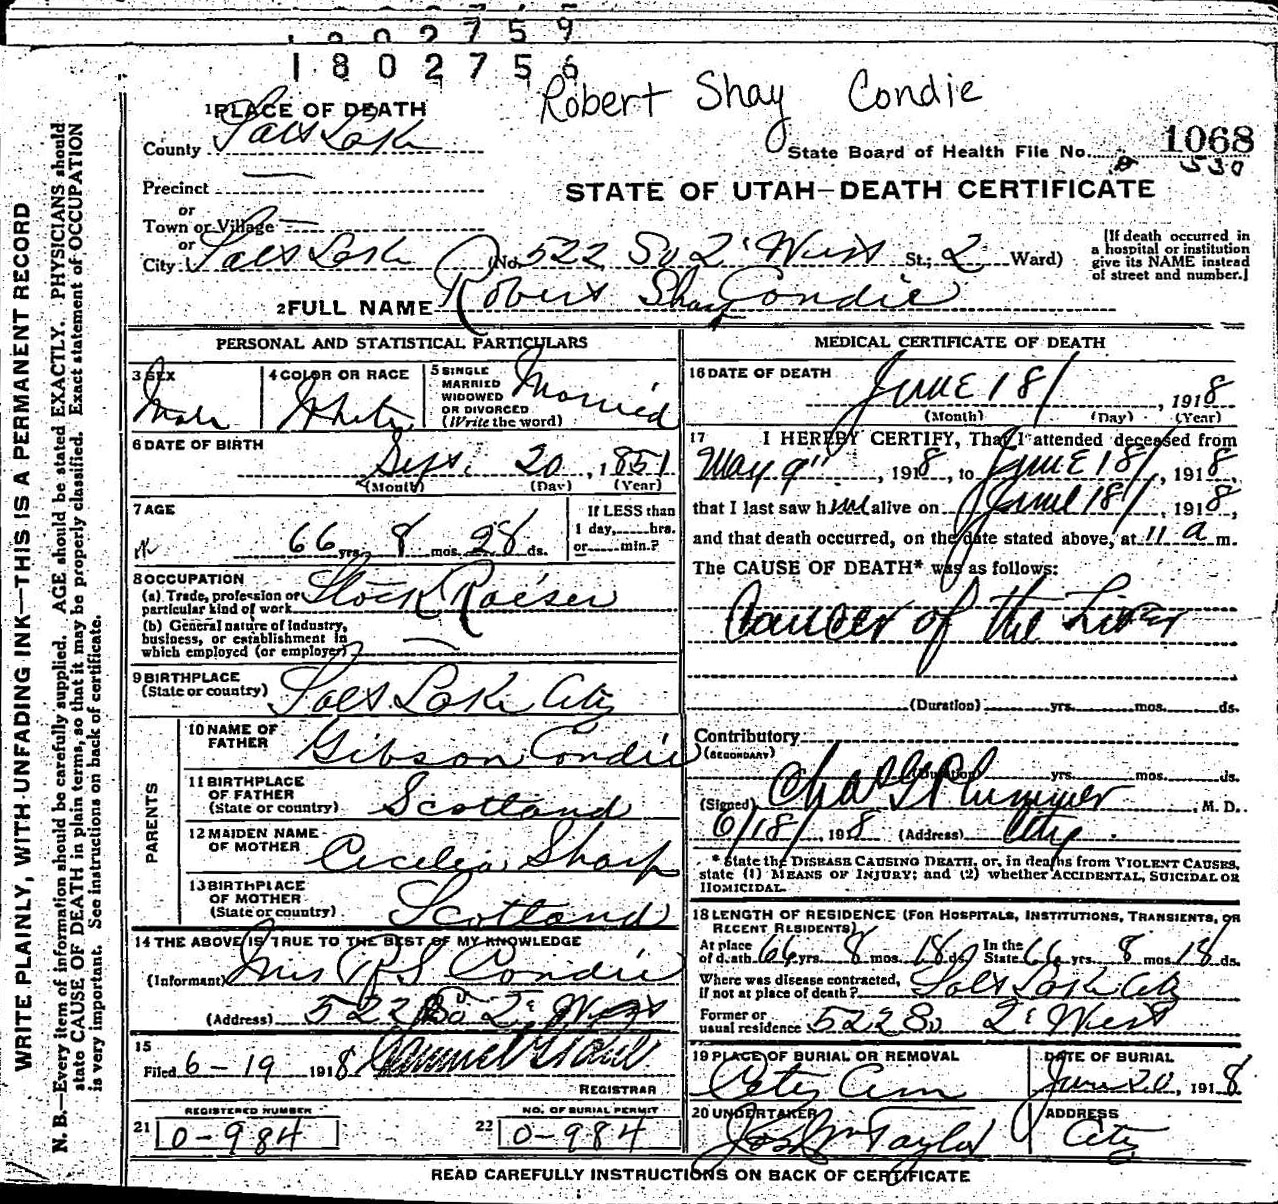 1802759
1802756
Robert Shay Condie
1 PLACE OF DEATH
County Salt Lake
State Board of Health File No. 1068
530
Precinct —
STATE OF UTAH—DEATH CERTIFICATE
or
Town or Village —
or
City Salt Lake (No. 522 So 2' West St.; 2 Ward)
[If death occurred in
a hospital or institution
give its NAME instead
of street and number.]
2 FULL NAME Robert Sharp Condie
PERSONAL AND STATISTICAL PARTICULARS
3 SEX
Male
4 COLOR OR RACE
White
5 SINGLE
MARRIED
WIDOWED
OR DIVORCED
(Write the word)
Married
6 DATE OF BIRTH
Sept. 20, 1851
(Month) (Day) (Year)
7 AGE
66 yrs. 8 mos. 28 ds.
If LESS than
1 day, hrs.
or min.?
8 OCCUPATION
(a) Trade, profession or
particular kind of work Stock Raiser
(b) General nature of industry,
business, or establishment in
which employed (or employer) —
9 BIRTHPLACE
(State or country) Salt Lake City
PARENTS
10 NAME OF
FATHER Gibson Condie
11 BIRTHPLACE
OF FATHER
(State or country) Scotland
12 MAIDEN NAME
OF MOTHER Cecelia Sharp
13 BIRTHPLACE
OF MOTHER
(State or country) Scotland
14 THE ABOVE IS TRUE TO THE BEST OF MY KNOWLEDGE
(Informant) Mrs R S Condie
(Address) 522 So 2' West
15
Filed 6-19 1918
REGISTRAR
REGISTERED NUMBER
21 0-984
NO. OF BURIAL PERMIT
22 0-984
MEDICAL CERTIFICATE OF DEATH
16 DATE OF DEATH
June 18/, 1918
(Month) (Day) (Year)
17 I HEREBY CERTIFY, That I attended deceased from
May 9", 1918, to June 18/, 1918,
that I last saw him alive on June 18/, 1918,
and that death occurred, on the date stated above, at 11 a m.
The CAUSE OF DEATH* was as follows:
Cancer of the Liver
(Duration) yrs. mos. ds.
Contributory
(SECONDARY)
(Duration) yrs. mos. ds.
(Signed) Chas G Plummer, M. D.
6/18/ 1918 (Address) City.
* State the DISEASE CAUSING DEATH, or, in deaths from VIOLENT CAUSES,
state (1) MEANS OF INJURY; and (2) whether ACCIDENTAL, SUICIDAL OR
HOMICIDAL.
18 LENGTH OF RESIDENCE (FOR HOSPITALS, INSTITUTIONS, TRANSIENTS, OR
RECENT RESIDENTS)
At place
of death 66 yrs. 8 mos. 18 ds. In the
State 66 yrs. 8 mos. 18 ds.
Where was disease contracted,
if not at place of death? Salt Lake City
Former or
usual residence 522 So 2' West
19 PLACE OF BURIAL OR REMOVAL
City Cem
DATE OF BURIAL
June 20, 1918
20 UNDERTAKER
Jos Wm Taylor
ADDRESS
City
READ CAREFULLY INSTRUCTIONS ON BACK OF CERTIFICATE
WRITE PLAINLY, WITH UNFADING INK—THIS IS A PERMANENT RECORD
N. B.—Every item of information should be carefully supplied. AGE should be stated EXACTLY. PHYSICIANS should
state CAUSE OF DEATH in plain terms, so that it may be properly classified. Exact statement of OCCUPATION
is very important. See instructions on back of certificate.